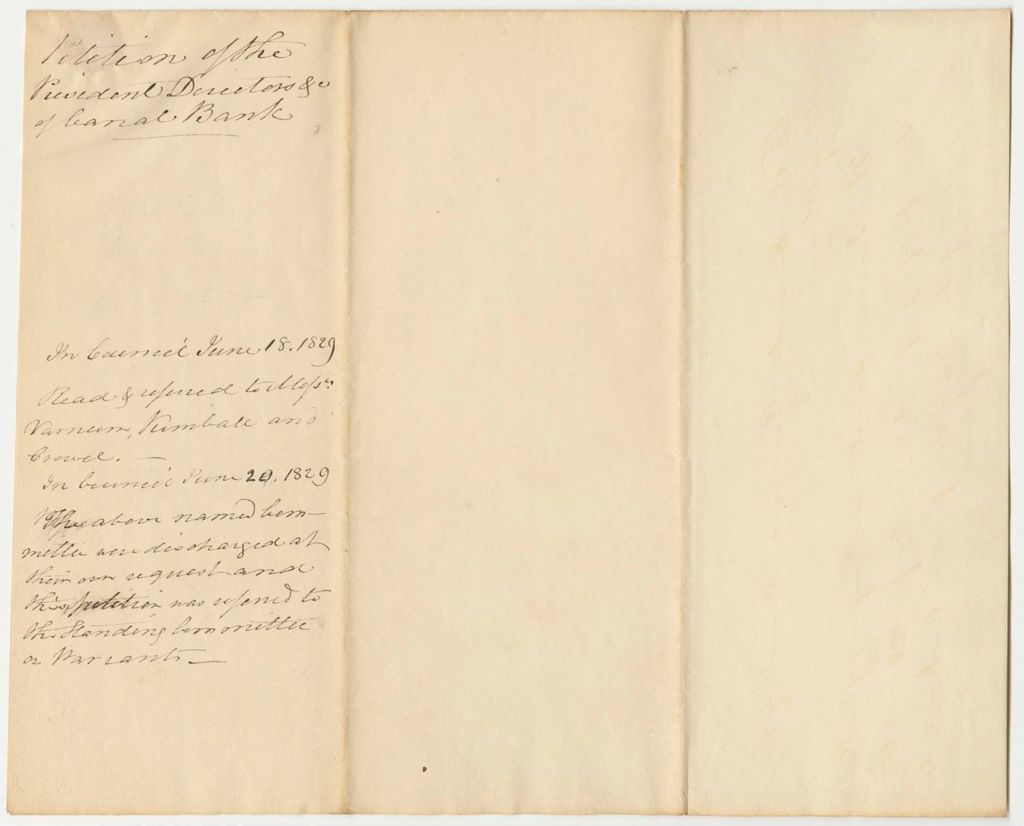 Petition of the
President Directors &c
of Canal Bank
In Council June 18. 1829
Read & referred to Mess.rs
Varnum, Kimball and
Crowel. —
In Council June 20. 1829
The above named Com-
mittee were discharged at
their own request and
this petition was referred to
the Standing Committee
on Warrants —